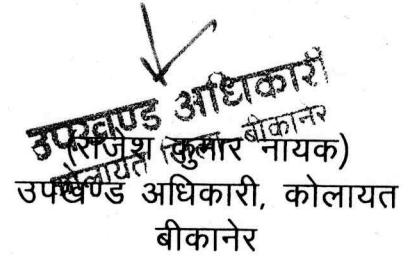 उपखण्ड अधिकारी
कोलायत जिला बीकानेर
(राजेश कुमार नायक)
उपखण्ड अधिकारी, कोलायत
बीकानेर